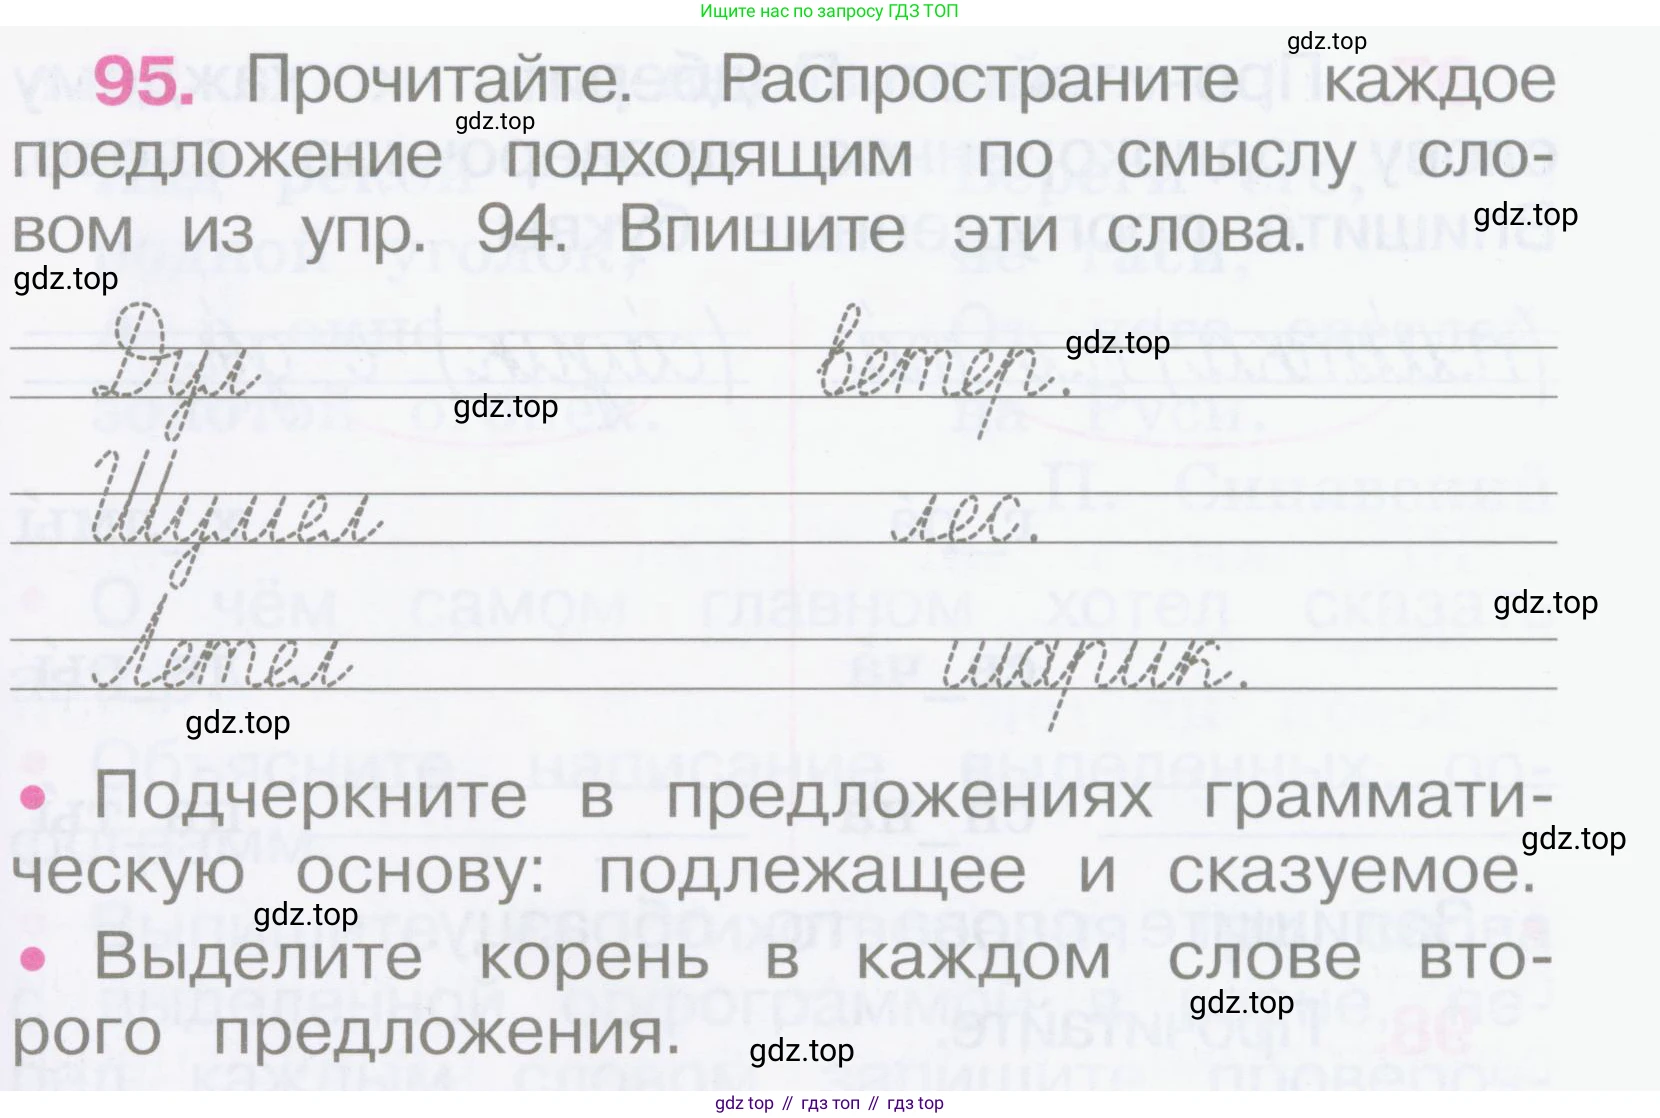 Ищите нас по запросу ГДЗ ТОП
gdz.top
95. Прочитайте. Распространите каждое
gdz.top
предложение подходящим по смыслу сло-
вом из упр. 94. Впишите эти слова.
gdz.top
gdz.top
Дул ветер.
gdz.top
gdz.top
Шумел лес.
gdz.top
Летел шарик.
gdz.top
• Подчеркните в предложениях граммати-
gdz.top
ческую основу: подлежащее и сказуемое.
gdz.top
• Выделите корень в каждом слове вто-
gdz.top
рого предложения.
gdz.top
gdz top // гдз топ // гдз top